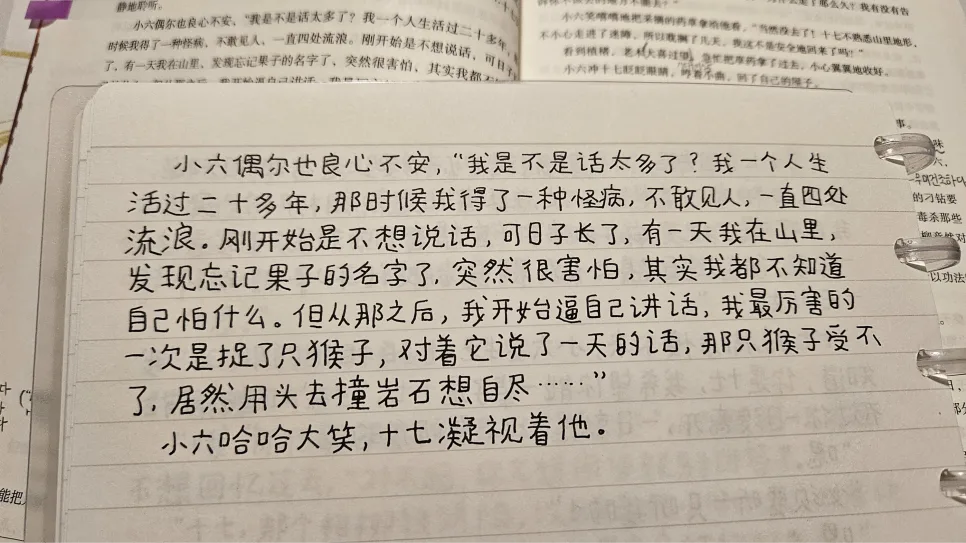 静地聆听。
小六偶尔也良心不安、“我是不是话太多了？我一个人生活过二十多年，
时候我得了一种怪病、不敢见人、一直四处流浪。刚开始是不想说话，可日子
了，有一天我在山里、发现忘记果子的名字了、突然很害怕、其实我都不
那么久？我有没有告
小六笑嘻嘻地把采摘的药草拿给他看，“当然没去了！十七不熟悉山里地形，
不小心走进了迷障，所以耽搁了几天，我这不是安全地回来了吗？”
看到植楮，老木大喜过望，急忙把草药拿了过去，小心翼翼地收好。
小六冲十七眨眨眼睛，哼着小曲，回了自己的屋子。
小六偶尔也良心不安，“我是不是话太多了？我一个人生
活过二十多年，那时候我得了一种怪病，不敢见人，一直四处
流浪。刚开始是不想说话，可日子长了，有一天我在山里，
发现忘记果子的名字了，突然很害怕，其实我都不知道
自己怕什么。但从那之后，我开始逼自己讲话，我最厉害的
一次是捉了只猴子，对着它说了一天的话，那只猴子受不
了，居然用头去撞岩石想自尽……”
小六哈哈大笑，十七凝视着他。
事。
的刁钻要
毒杀那些
以功法
能把